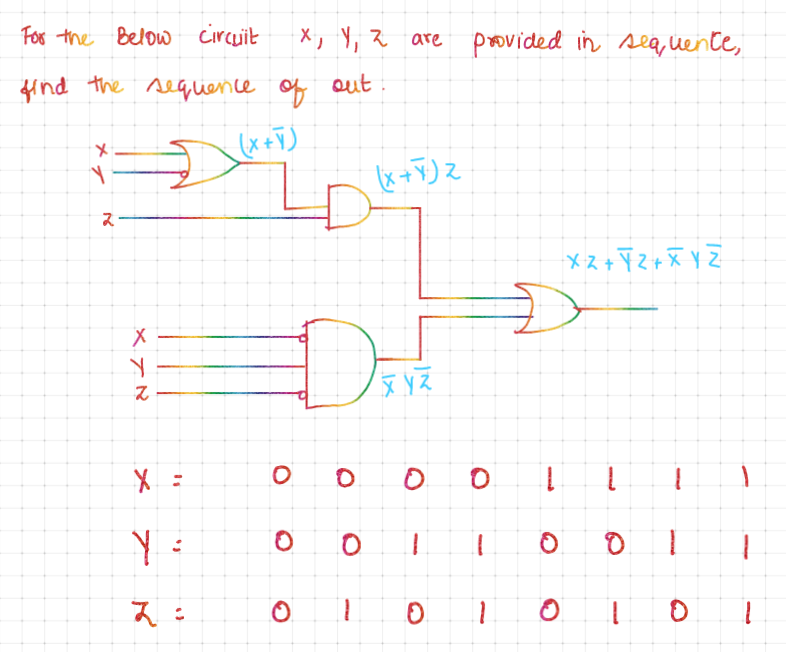 For the Below circuit X, Y, Z are provided in sequence,
find the sequence of out.
X
Y
(X+Y̅)
Z
(X+Y̅)Z
XZ+Y̅Z+X̅YZ̅
X
Y
Z
X̅YZ̅
X = 0 0 0 0 1 1 1 1
Y = 0 0 1 1 0 0 1 1
Z = 0 1 0 1 0 1 0 1